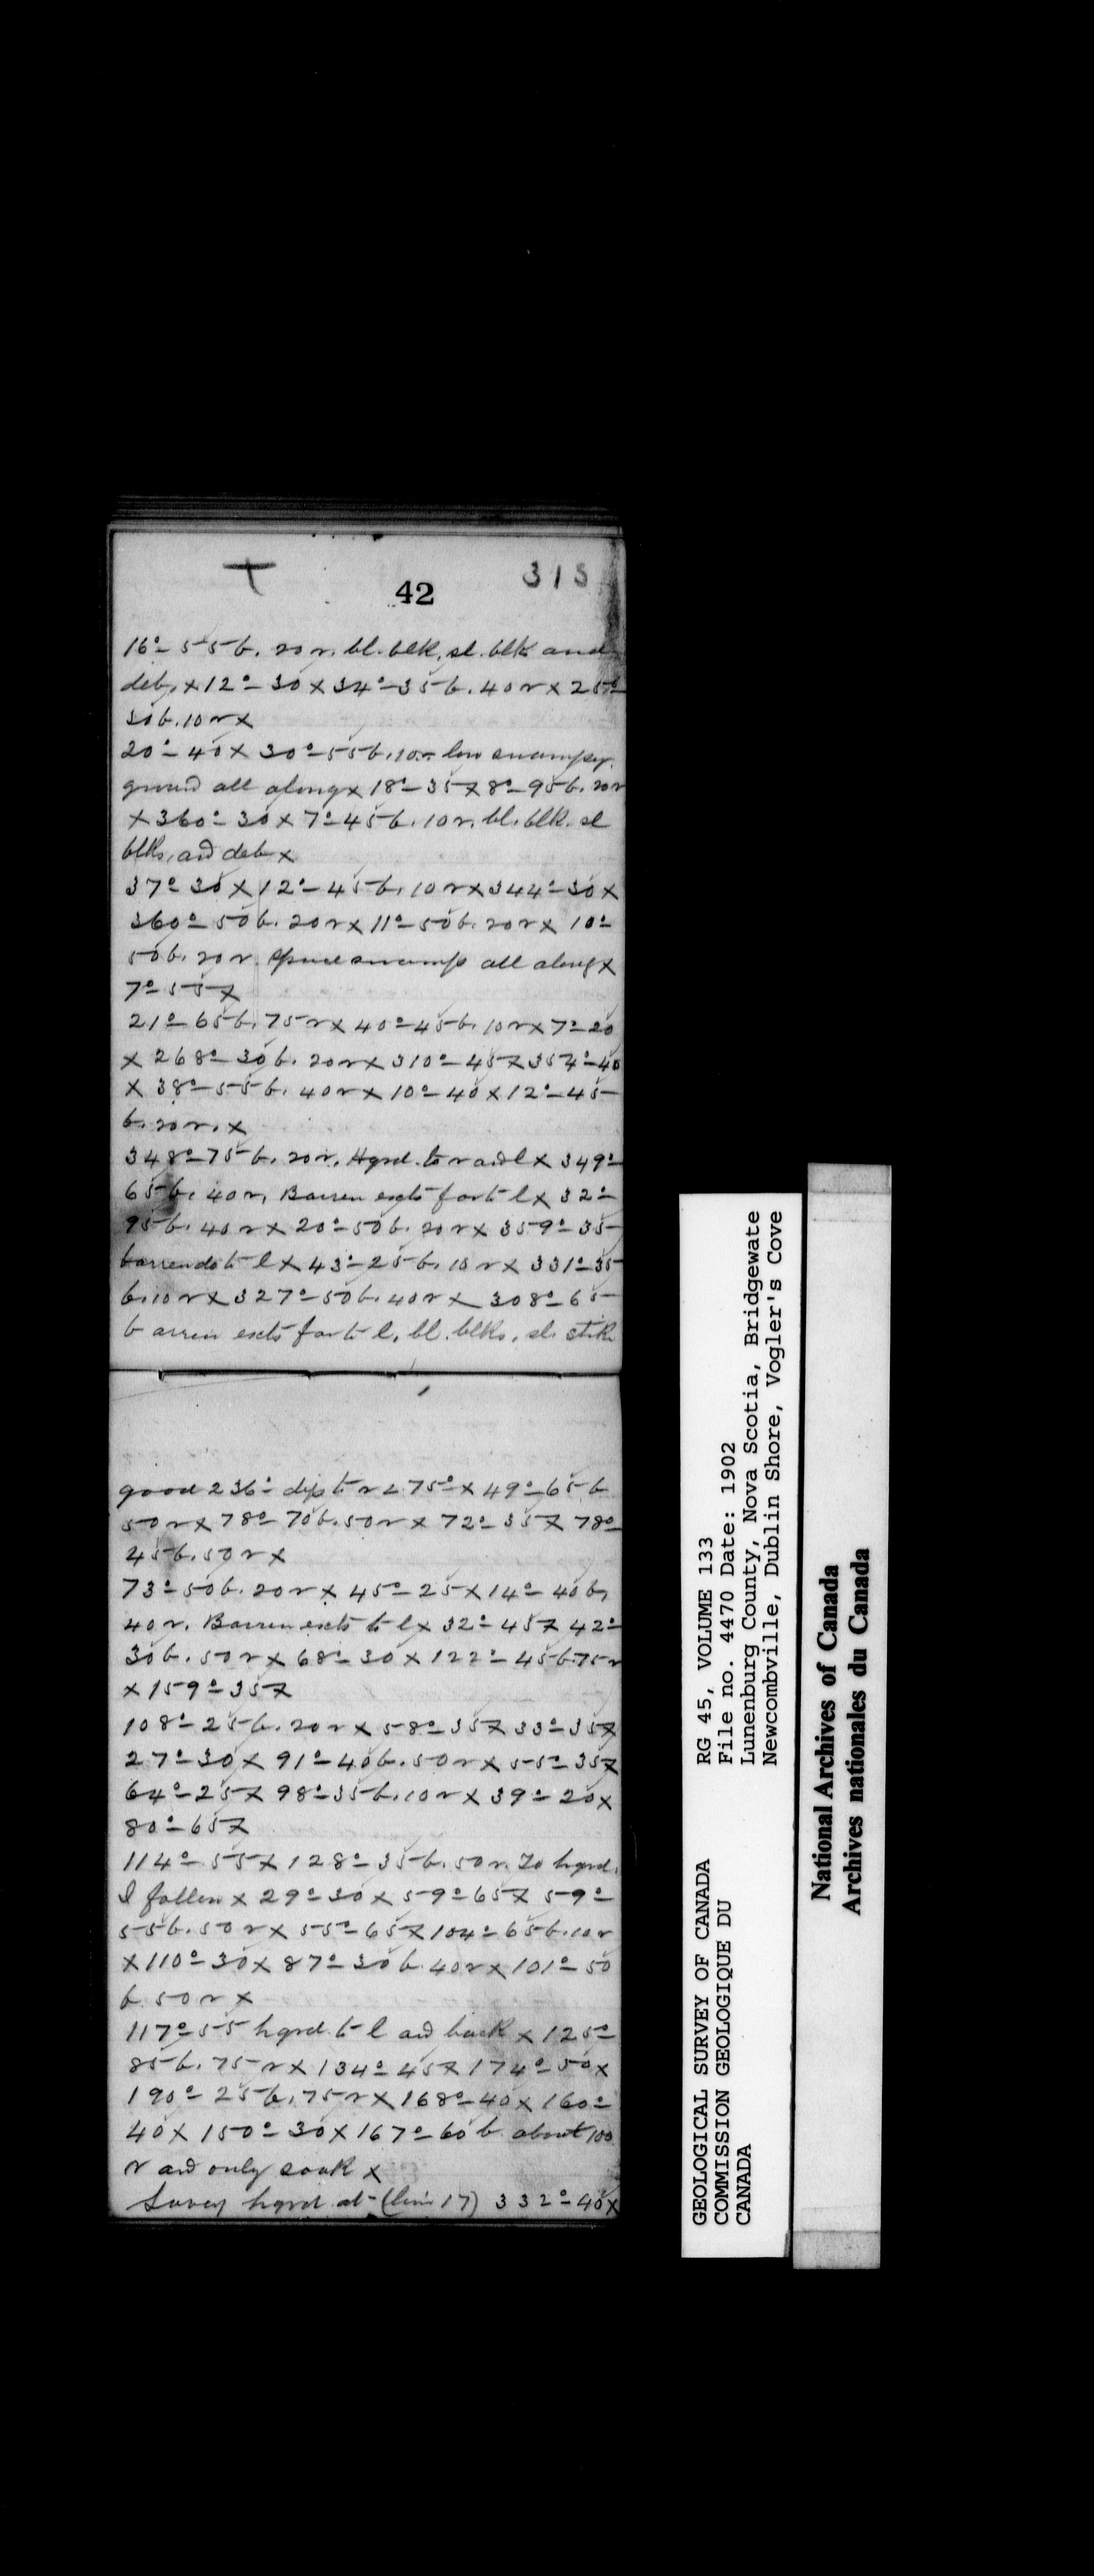 313
42
16°- 55 b. 20 r. bl. blk, sl. blk and
deb, x 12°- 30 x 34°- 35 b. 40 r x 25°-
30 b. 10 r x
20°- 40 x 30°- 55 b. 10 r low swampy
ground all along x 18°- 35 x 8°- 95 b. 20 r
x 360°- 30 x 7°- 45 b. 10 r. bl. blk. sl
blks, and deb x
37°- 30 x 12°- 45 b. 10 r x 344°- 30 x
360°- 50 b. 20 r x 11°- 50 b. 20 r x 10°-
50 b. 20 r. Spruce swamp all along x
7°- 55 x
21°- 65 b. 75 r x 40°- 45 b. 10 r x 7°- 20
x 268°- 30 b. 20 r x 310°- 45 x 357°- 40
x 38°- 55 b. 40 r x 10°- 40 x 12°- 45
b. 20 r. x
348°- 75 b. 20 r. Hgrd. to r and l x 349°-
65 b. 40 r, Barren exts far to l x 32°-
95 b. 40 r x 20°- 50 b. 20 r x 359°- 35
barren do to l x 43°- 25 b. 10 r x 331°- 35
b. 10 r x 327°- 50 b. 40 r x 308°- 65
barren exts far to l, bl. blks, sl. stk
good 236°- dip to r ∠ 75° x 49°- 65 b
50 r x 78°- 70 b. 50 r x 72°- 35 x 78°-
45 b. 50 r x
73°- 50 b. 20 r x 45°- 25 x 14°- 40 b,
40 r. Barren exts to l x 32°- 45 x 42°-
30 b. 50 r x 68°- 30 x 122°- 45 b 75 r
x 159°- 35 x
108°- 25 b. 20 r x 58°- 35 x 33°- 35 x
27°- 30 x 91°- 40 b. 50 r x 55°- 35 x
64°- 25 x 98°- 35 b. 10 r x 39°- 20 x
80°- 65 x
114°- 55 x 128°- 35 b. 50 r. To hgrd.
I follow x 29°- 30 x 59°- 65 x 59°-
55 b. 50 r x 55°- 65 x 104°- 65 b. 10 r
x 110°- 30 x 87°- 30 b 40 r x 101°- 50
b. 50 r x
117°- 55 hgrd. to l and back x 125°-
85 b. 75 r x 134°- 45 x 174°- 50 x
190°- 25 b. 75 r x 168°- 40 x 160°-
40 x 150°- 30 x 167°- 60 b about 100
r and only soak x
Survey hgrd at (line 17) 332°- 40 x
GEOLOGICAL SURVEY OF CANADA
COMMISSION GEOLOGIQUE DU
CANADA
RG 45, VOLUME 133
File no. 4470 Date: 1902
Lunenburg County, Nova Scotia, Bridgewate
Newcombville, Dublin Shore, Vogler's Cove
National Archives of Canada
Archives nationales du Canada